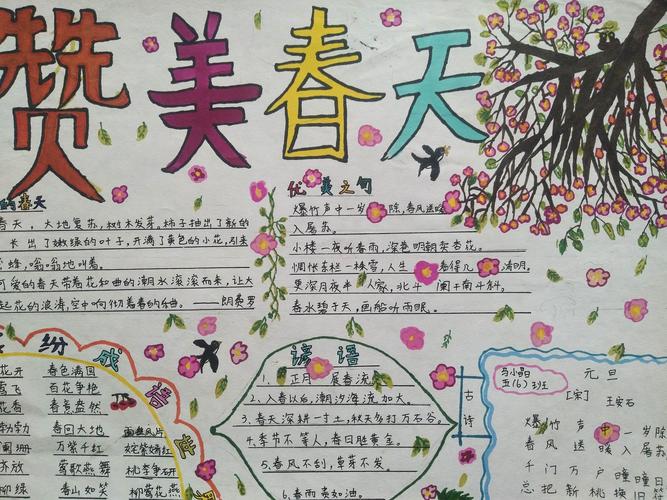 赞美春天
的春天
春天，大地复苏，树木发芽。柿子抽出了新的
长出了嫩绿的叶子，开满了黄色的小花，引来
蜜蜂，嗡嗡地叫着。
可爱的春天带着花和曲的潮水滚滚而来，让大
起花的浪涛，空中响彻着春的乐曲。——朗费罗
优美之句
爆竹声中一岁除，春风送暖
入屠苏。
小楼一夜听春雨，深巷明朝卖杏花。
惆怅东栏一株雪，人生看得几清明。
更深月色半人家，北斗阑干南斗斜。
春水碧于天，画船听雨眠。
纷成语世界
花开 春色满园
莺飞 百花争艳
花香 春意盎然
勃勃 春回大地
阑珊 万紫千红 姹紫嫣红
齐放 莺歌燕舞 桃李争妍
绿 春山如笑 柳莺花燕
谚语
1、正月展春流
2、入春以后，潮汐海流加大。
3、春天深耕一寸土，秋天多打万石谷。
4、季节不等人，春日胜黄金。
5、春风不刮，草芽不发。
6、春雨贵如油。
古诗
五（6）班
元旦
[宋] 王安石
爆竹声中一岁除
春风送暖入屠苏
千门万户曈曈日
总把新桃换旧符